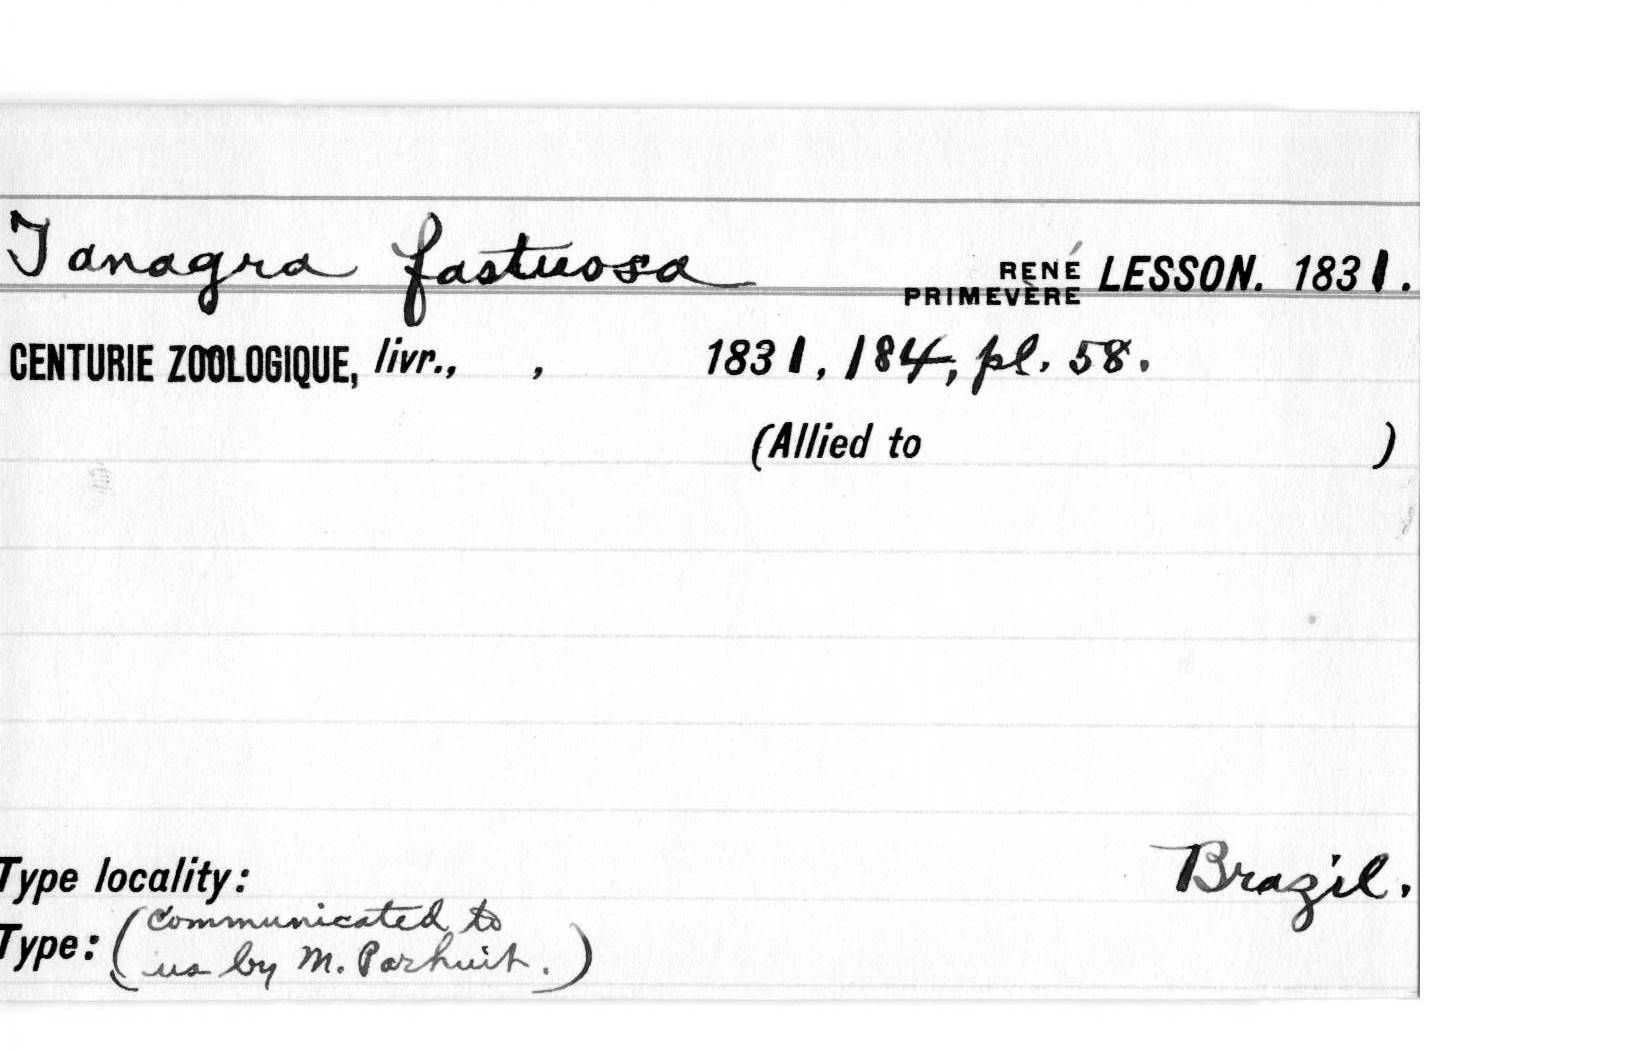 Tanagra fastuosa RENÉ PRIMEVÈRE LESSON. 1831.
CENTURIE ZOOLOGIQUE, livr., , 1831, 184, pl. 58.
(Allied to )
Type locality: Brazil.
Type: (communicated to
us by M. Parhuit.)